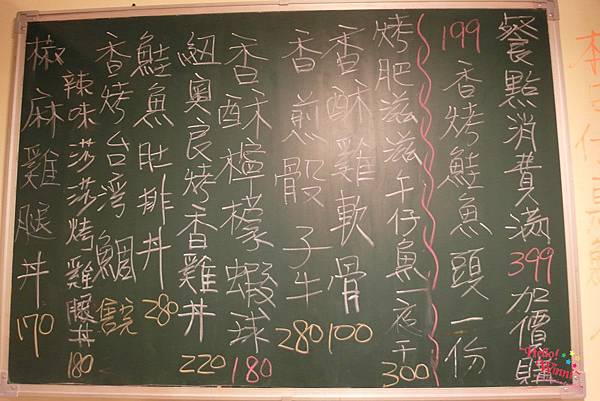 餐點消費滿399加價購
199香烤鮭魚頭一份
烤肥滋滋午仔魚一夜干300
香酥雞軟骨100
香煎骰子牛280
香酥檸檬蝦球180
紐奧良烤香雞丼220
鮭魚肚排丼280
香烤台湾鯛
辣味莎莎烤雞腿丼180
椒麻雞腿丼170
Hello! Winni